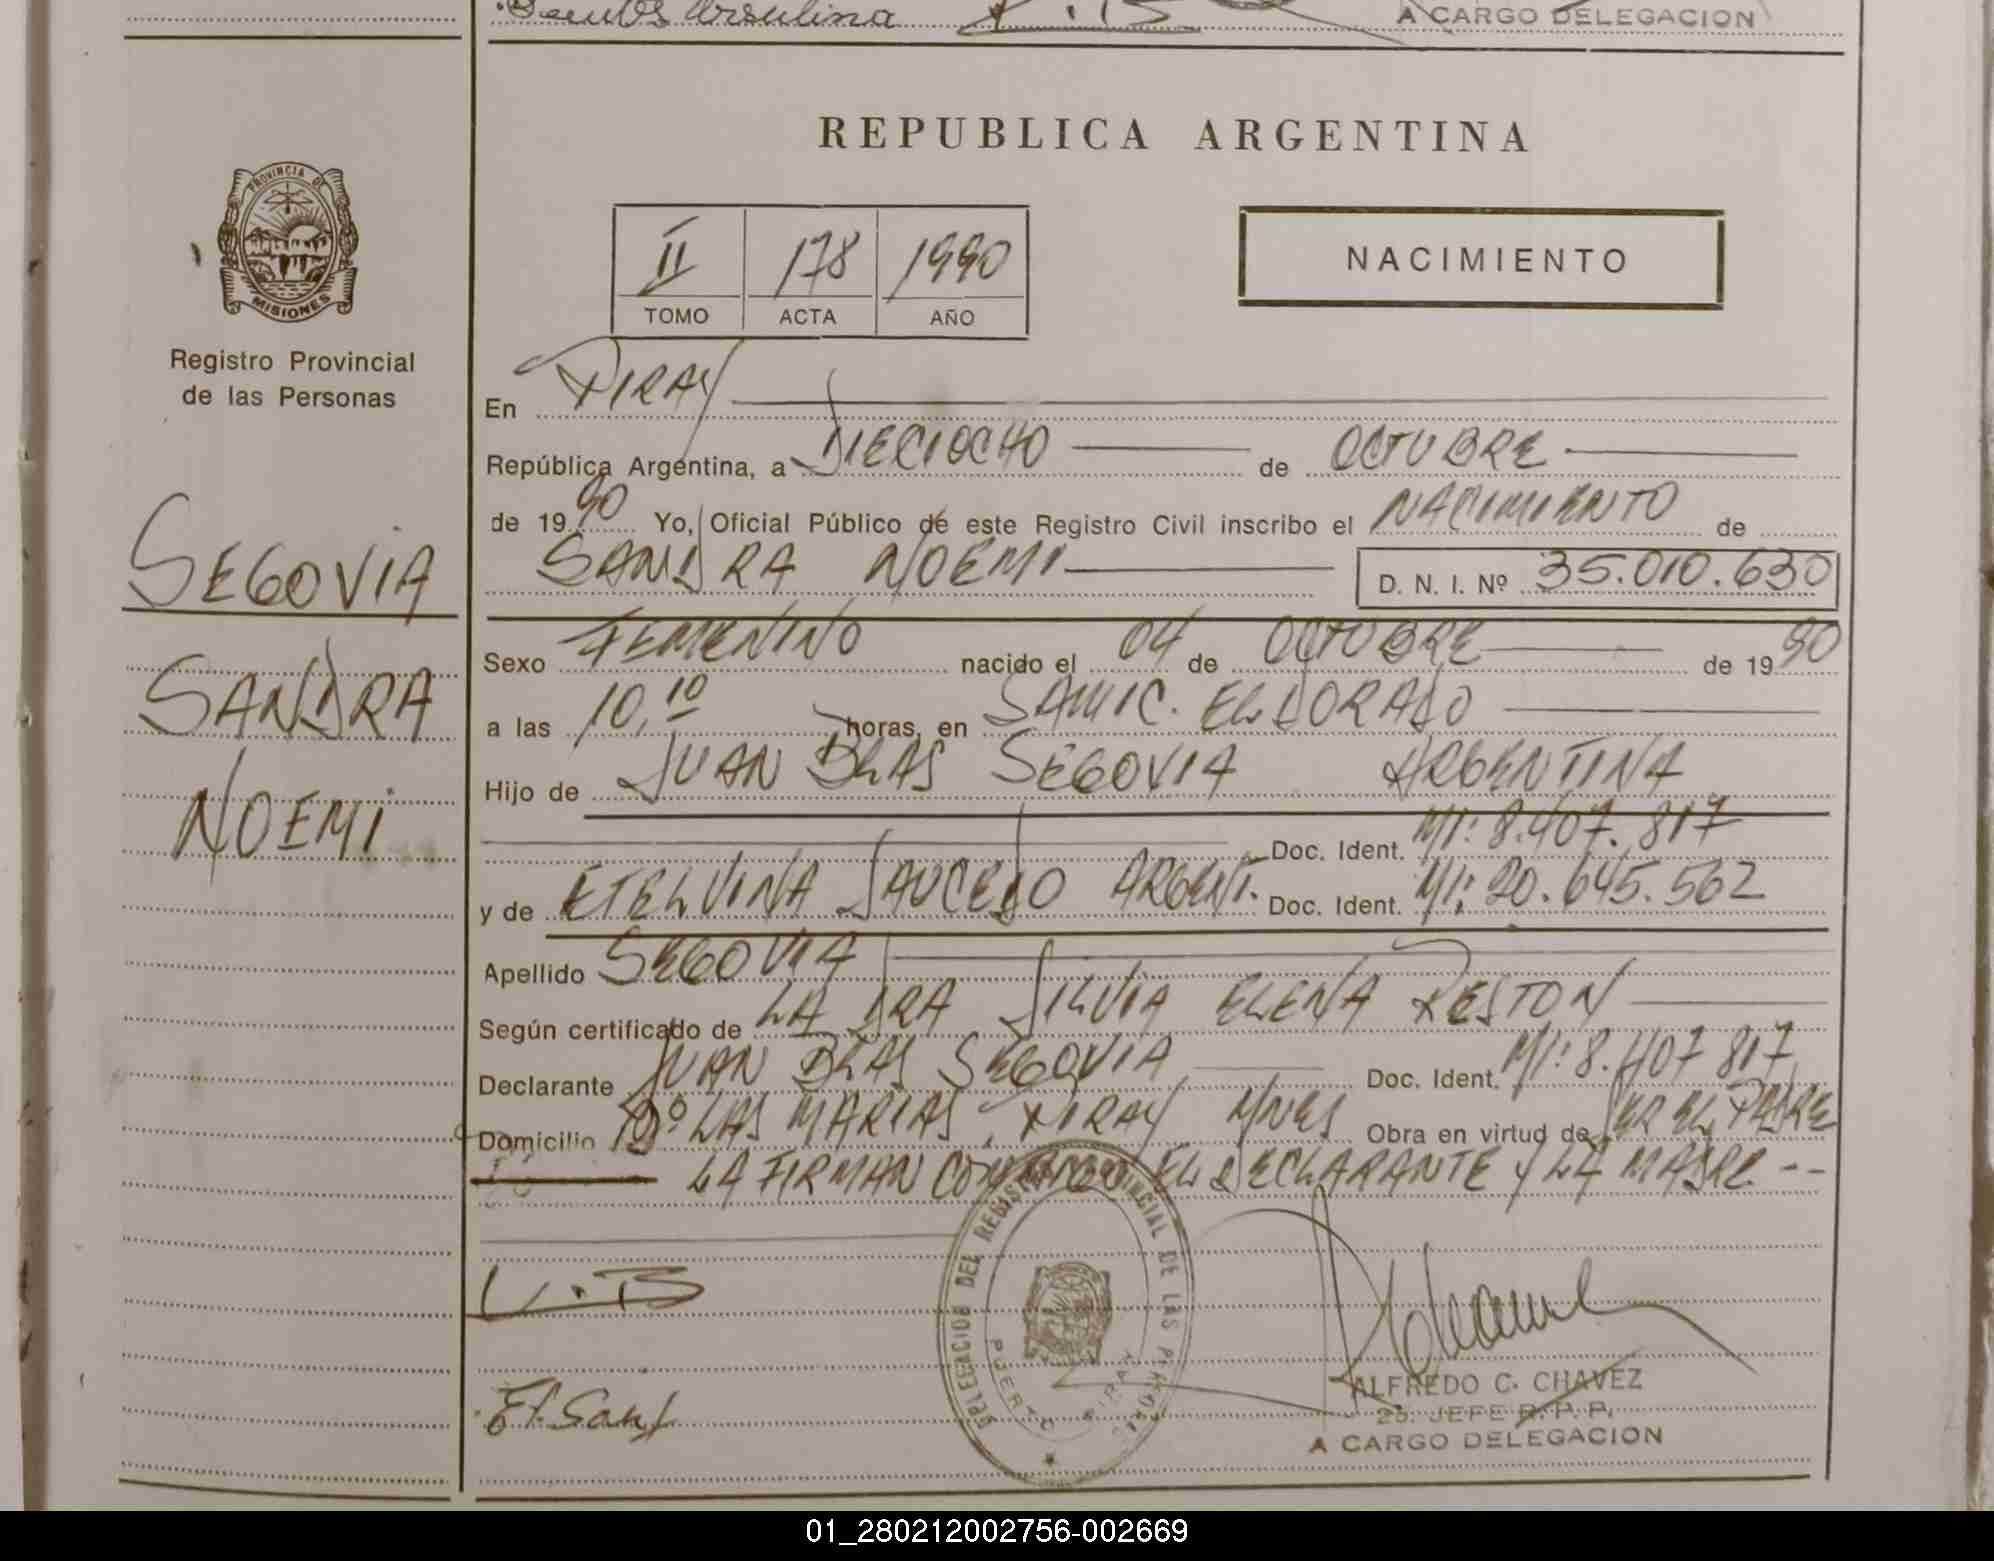 A CARGO DELEGACION
REPUBLICA ARGENTINA
PROVINCIA DE
MISIONES
Registro Provincial
de las Personas
II 178 1990
TOMO ACTA AÑO
NACIMIENTO
SEGOVIA
SANDRA
NOEMI
En PIRAY
República Argentina, a DIECIOCHO de OCTUBRE
de 1990 Yo, Oficial Público de este Registro Civil inscribo el NACIMIENTO de
SANDRA NOEMI D. N. I. Nº 35.010.630
Sexo FEMENINO nacido el 04 de OCTUBRE de 1990
a las 10,10 horas, en SAMIC. ELDORADO
Hijo de JUAN BLAS SEGOVIA ARGENTINA
Doc. Ident. MI: 8.407.817
y de ETELVINA SAUCEDO ARGENT. Doc. Ident. MI: 20.645.562
Apellido SEGOVIA
Según certificado de LA DRA SILVIA ELENA RESTON
Declarante JUAN BLAS SEGOVIA Doc. Ident. MI: 8.407 817
Domicilio Bº LAS MARIAS, PIRAY MNES Obra en virtud de SER EL PADRE
LA FIRMAN CONMIGO EL DECLARANTE Y LA MADRE.--
DELEGACION DEL REGISTRO PROVINCIAL DE LAS PERSONAS
PUERTO PIRAY
ALFREDO C. CHAVEZ
2º. JEFE R. P. P.
A CARGO DELEGACION
01_280212002756-002669